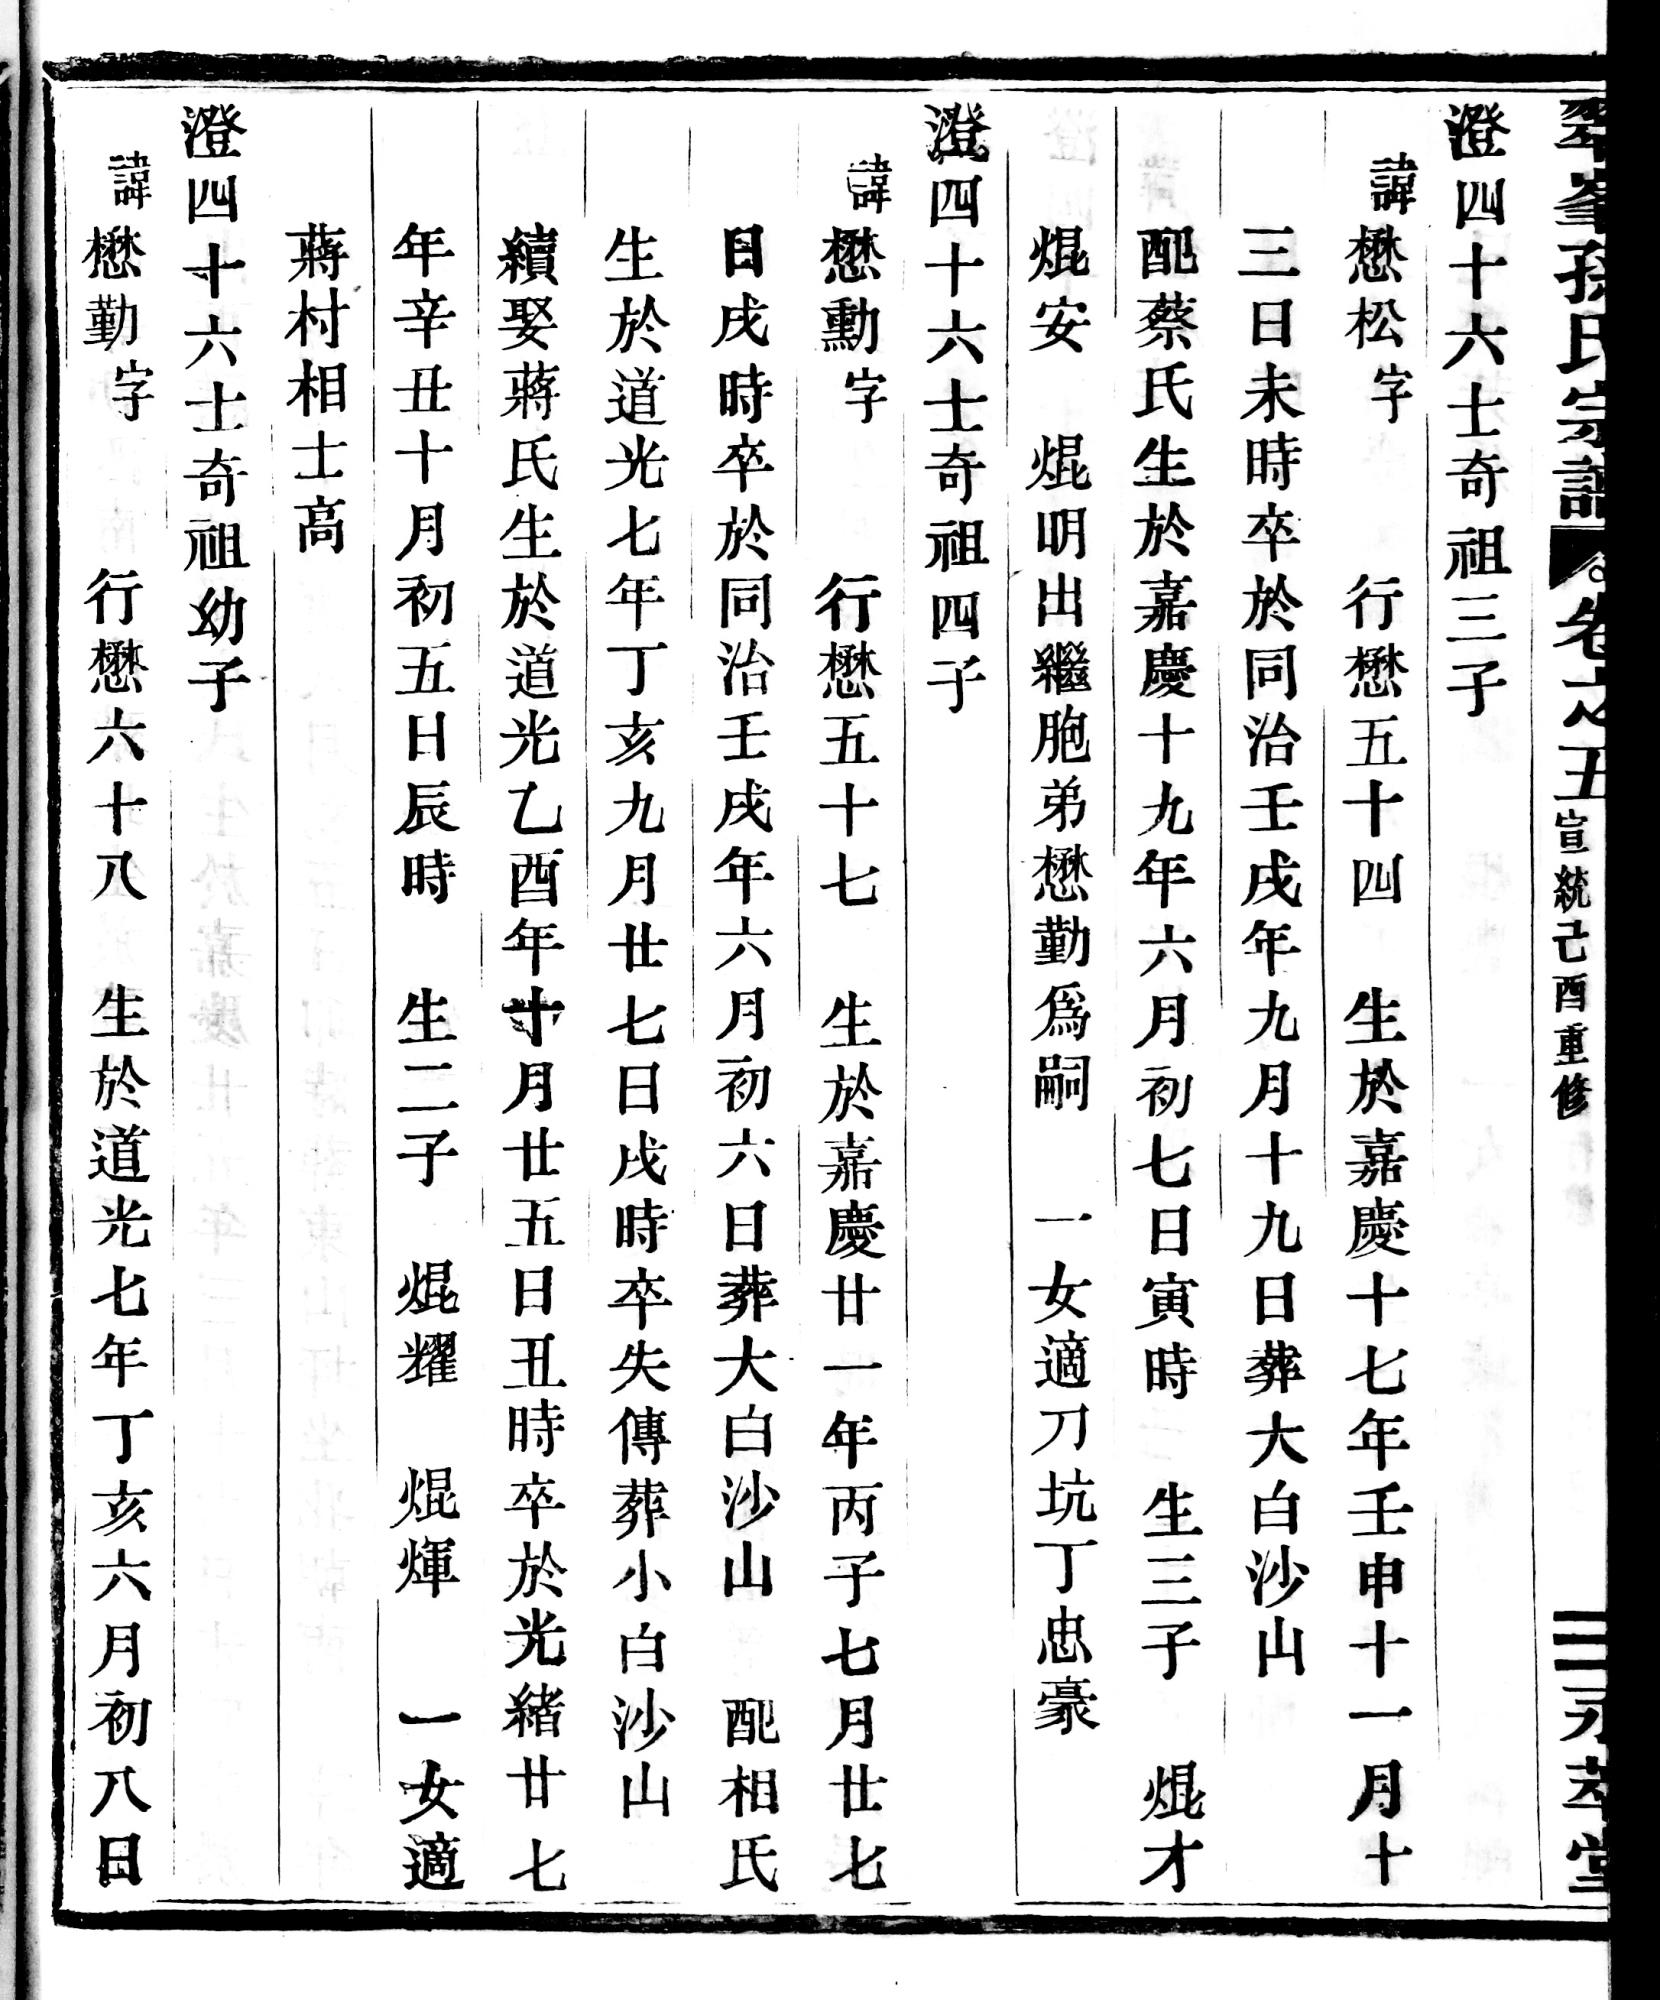 峯孫氏宗譜 卷之五 宣統己酉重修 三 永萃堂
澄四十六士奇祖三子
諱懋松字 行懋五十四 生於嘉慶十七年壬申十一月十
三日未時卒於同治壬戌年九月十九日葬大白沙山
配蔡氏生於嘉慶十九年六月初七日寅時 生三子 焜才
焜安 焜明出繼胞弟懋勤爲嗣 一女適刀坑丁忠豪
澄四十六士奇祖四子
諱懋勳字 行懋五十七 生於嘉慶廿一年丙子七月廿七
日戌時卒於同治壬戌年六月初六日葬大白沙山 配相氏
生於道光七年丁亥九月廿七日戌時卒失傳葬小白沙山
續娶蔣氏生於道光乙酉年十月廿五日丑時卒於光緒廿七
年辛丑十月初五日辰時 生二子 焜耀 焜煇 一女適
蔣村相士高
澄四十六士奇祖幼子
諱懋勤字 行懋六十八 生於道光七年丁亥六月初八日